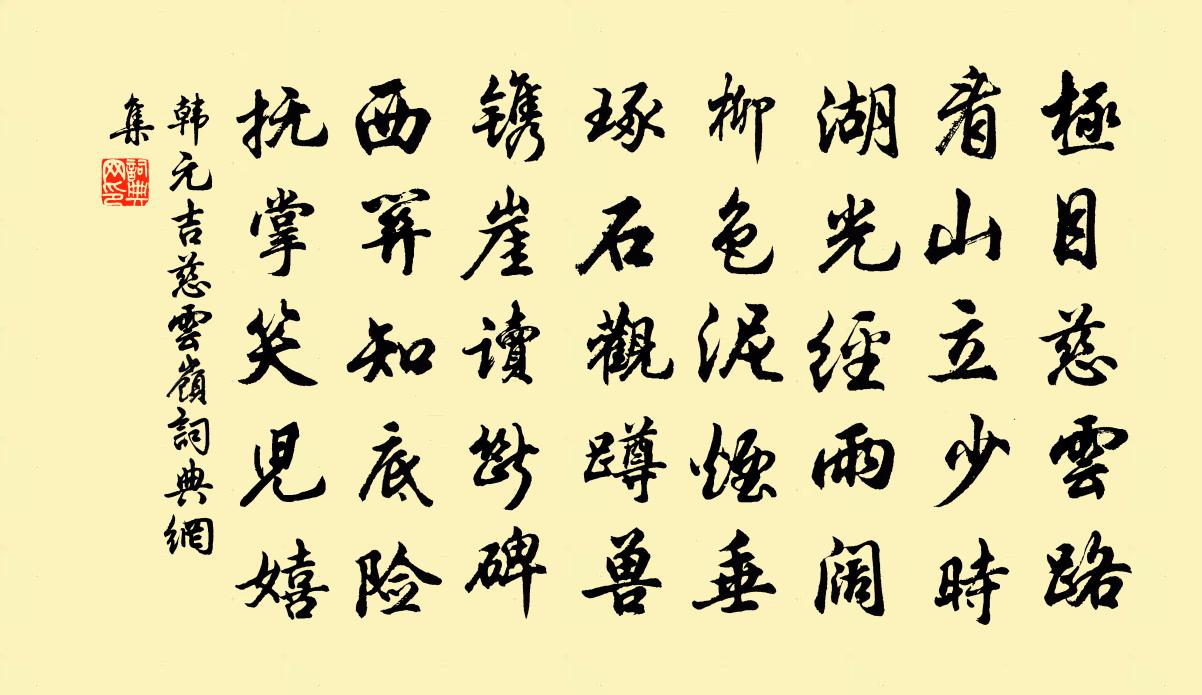 極目慈雲路
看山立少時
湖光經雨闊
柳色泥煙垂
琢石觀蹲兽
镌崖读斷碑
西笄知底险
抚掌笑児嬉
韩元吉慈雲嶺詞典網
集
詞典网印